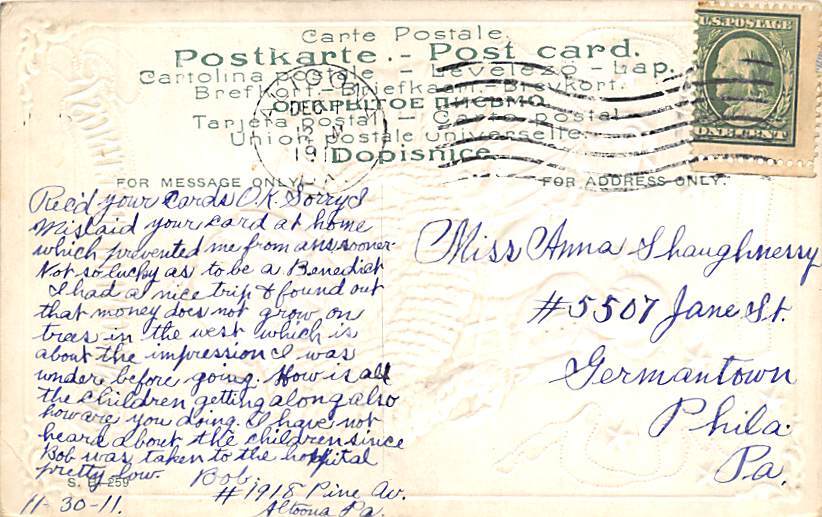 Carte Postale.
Postkarte. - Post card.
Cartolina postale - Levelezö - Lap.
Brefkort - Briefkaart - Brevkort.
ОТКРЫТОЕ ПИСЬМО
Tarjeta postal - Carte postal
Union postale universelle.
Dopisnice
U.S. POSTAGE
ONE CENT
DEC
191
FOR MESSAGE ONLY.
FOR ADDRESS ONLY.
Rec'd your Cards O.K. Sorry I
Mislaid your card at home
which prevented me from ans sooner.
Not so lucky as to be a Benedict
I had a nice trip & found out
that money does not grow on
trees in the west which is
about the impression I was
under before going. How is all
the children getting along also
how are you doing. I have not
heard about the children since
Bob was taken to the hospital
pretty low.
Bob.
#1918 Pine Av.
Altoona Pa.
11-30-11.
Miss Anna Shaughnessy
#5507 Jane St.
Germantown
Phila.
Pa.